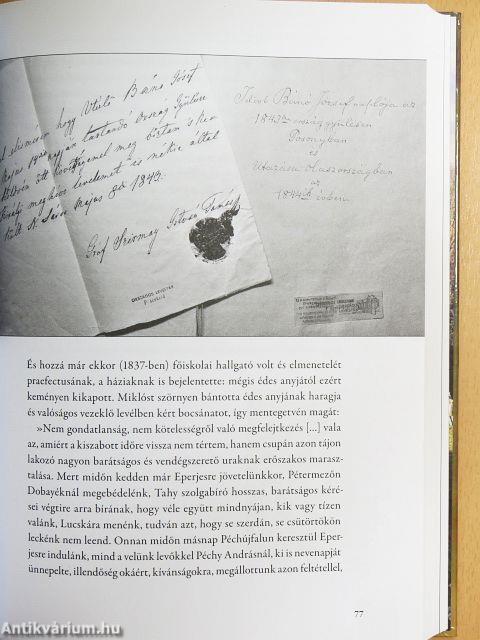 elismérem hogy Bánó Jósef
Májusi Ország Gyűlésre
meg bíztam
levelemet
Május 8d 1843.
Gróf Szirmay István Tamás
ORSZÁGOS LEVÉLTÁR
Bánó József naplója az
1843 országgyűlésen
Posonyban
és
Utazása Olaszországban
az
1844ik évben.
És hozzá már ekkor (1837-ben) főiskolai hallgató volt és elmenetelét
praefectusának, a háziaknak is bejelentette: mégis édes anyjától ezért
keményen kikapott. Miklóst szörnyen bántotta édes anyjának haragja
és valóságos vezeklő levélben kért bocsánatot, így mentegetvén magát:
»Nem gondatlanság, nem kötelességről való megfelejtkezés [...] vala
az, amiért a kiszabott időre vissza nem tértem, hanem csupán azon tájon
lakozó nagyon barátságos és vendégszerető uraknak erőszakos marasz-
talása. Mert midőn kedden már Eperjesre jövetelünkkor, Pétermezőn
Dobayéknál megebédelénk, Tahy szolgabíró hosszas, barátságos kéré-
sei végtire arra bírának, hogy véle együtt mindnyájan, kik vagy tízen
valánk, Lucskára menénk, tudván azt, hogy se szerdán, se csütörtökön
leckénk nem leend. Onnan midőn másnap Péchújfalun keresztül Eper-
jesre indulánk, mind a velünk levőkkel Péchy Andrásnál, ki is nevenapját
ünnepelte, illendőség okáért, kívánságokra, megállottunk azon feltétellel,
77
Antikvárium.hu